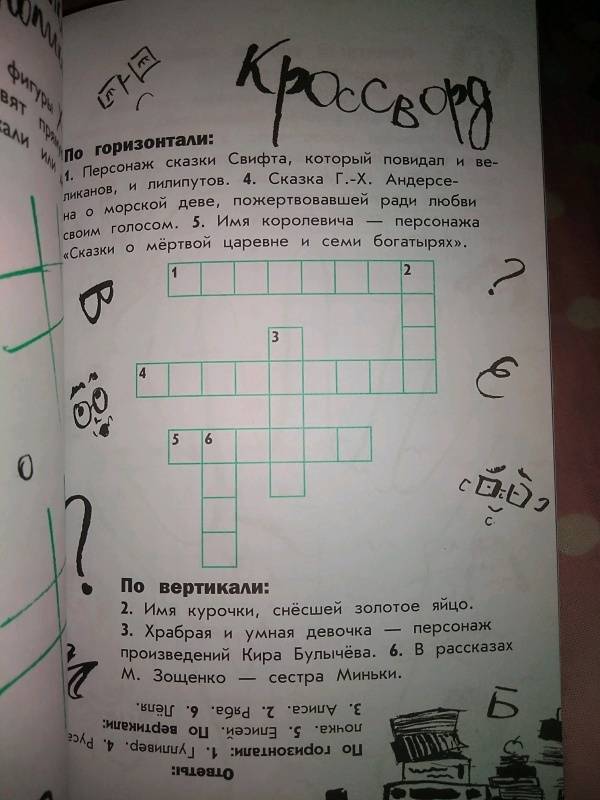 Кроссворд
По горизонтали:
1. Персонаж сказки Свифта, который повидал и ве-
ликанов, и лилипутов. 4. Сказка Г.-Х. Андерсе-
на о морской деве, пожертвовавшей ради любви
своим голосом. 5. Имя королевича — персонажа
«Сказки о мёртвой царевне и семи богатырях».
1
2
3
4
5 6
По вертикали:
2. Имя курочки, снёсшей золотое яйцо.
3. Храбрая и умная девочка — персонаж
произведений Кира Булычёва. 6. В рассказах
М. Зощенко — сестра Миньки.
Ответы:
По горизонтали: 1. Гулливер. 4. Руса
лочка. 5. Елисей. По вертикали:
3. Алиса. 2. Ряба. 6. Лёля.
фигуры
В
?
Е
?
Б